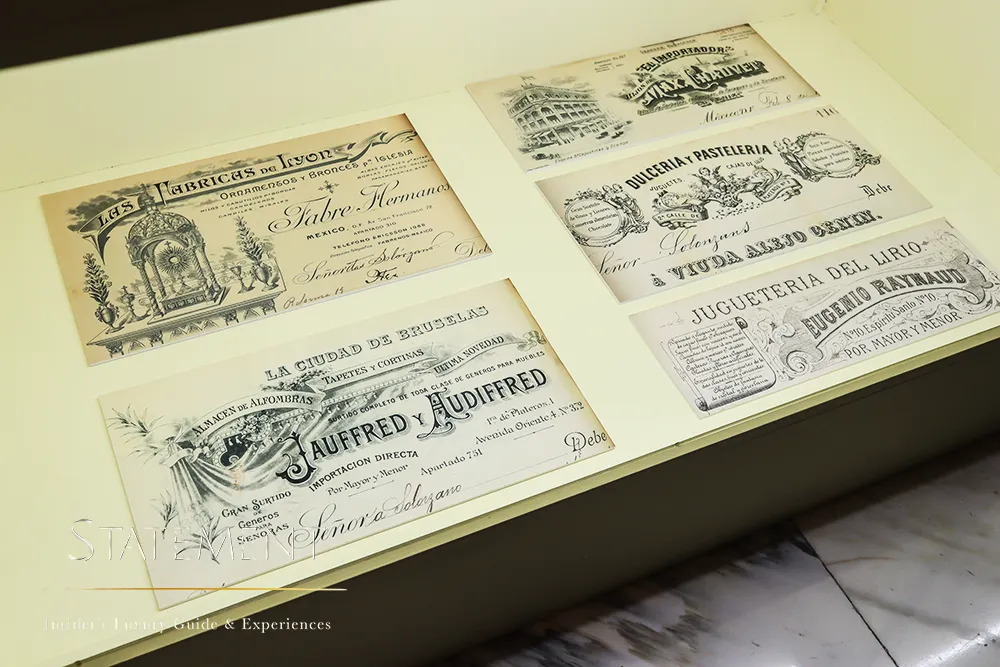 LAS FABRICAS DE LYON
ORNAMENTOS Y BRONCES Pª IGLESIA
Fabre Hermanos
MEXICO, D.F. Av San Francisco 72
APARTADO
TELEFONO ERICSSON
Señoritas Solorzano
Debe
LA CIUDAD DE BRUSELAS
ALMACEN DE ALFOMBRAS
TAPETES Y CORTINAS
ULTIMA NOVEDAD
SURTIDO COMPLETO DE TODA CLASE DE GENEROS PARA MUEBLES
JAUFFRED Y AUDIFFRED
1ra de Plateros, 1
Avenida Oriente 4, Nº 372
IMPORTACION DIRECTA
Por Mayor y Menor
Apartado 751
Debe
GRAN SURTIDO
DE
Generos
PARA
SEÑORAS
Señora Solorzano
EL IMPORTADOR
DULCERIA Y PASTELERIA
JUGUETES
CAJAS DE
CALLE DE
Chocolate
Debe
Señor Solorzano
Á VIUDA ALEJO GENIN.
JUGUETERIA DEL LIRIO
EUGENIO RAYNAUD
Nº 10, Espiritu Santo Nº 10.
POR MAYOR Y MENOR
STATEMENT
Insider's Luxury Guide & Experiences